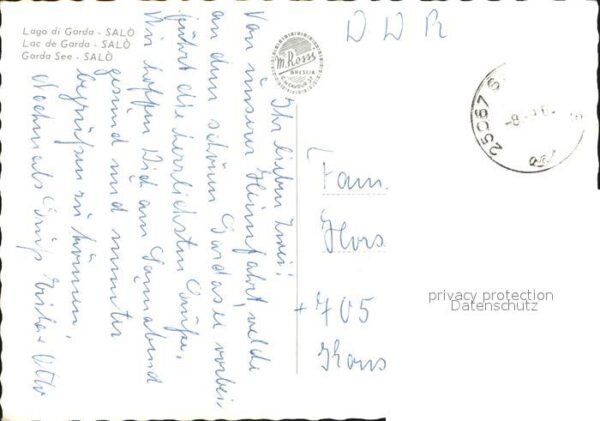 Lago di Garda - SALÒ
Lac de Garda - SALÒ
Garda See - SALÒ
M. Rossi
BRESCIA
DDR
25087 S
Ihr lieben Zwei!
Von unserer Heimfahrt, welche
an dem schönen Gardasee vorbei
führt die herzlichsten Grüße.
Wir hoffen Dich am Sonnabend
gesund und munter
begrüßen zu können.
Nochmals Grüße + Otto
Fam.
Hors
+ 705
privacy protection
Datenschutz